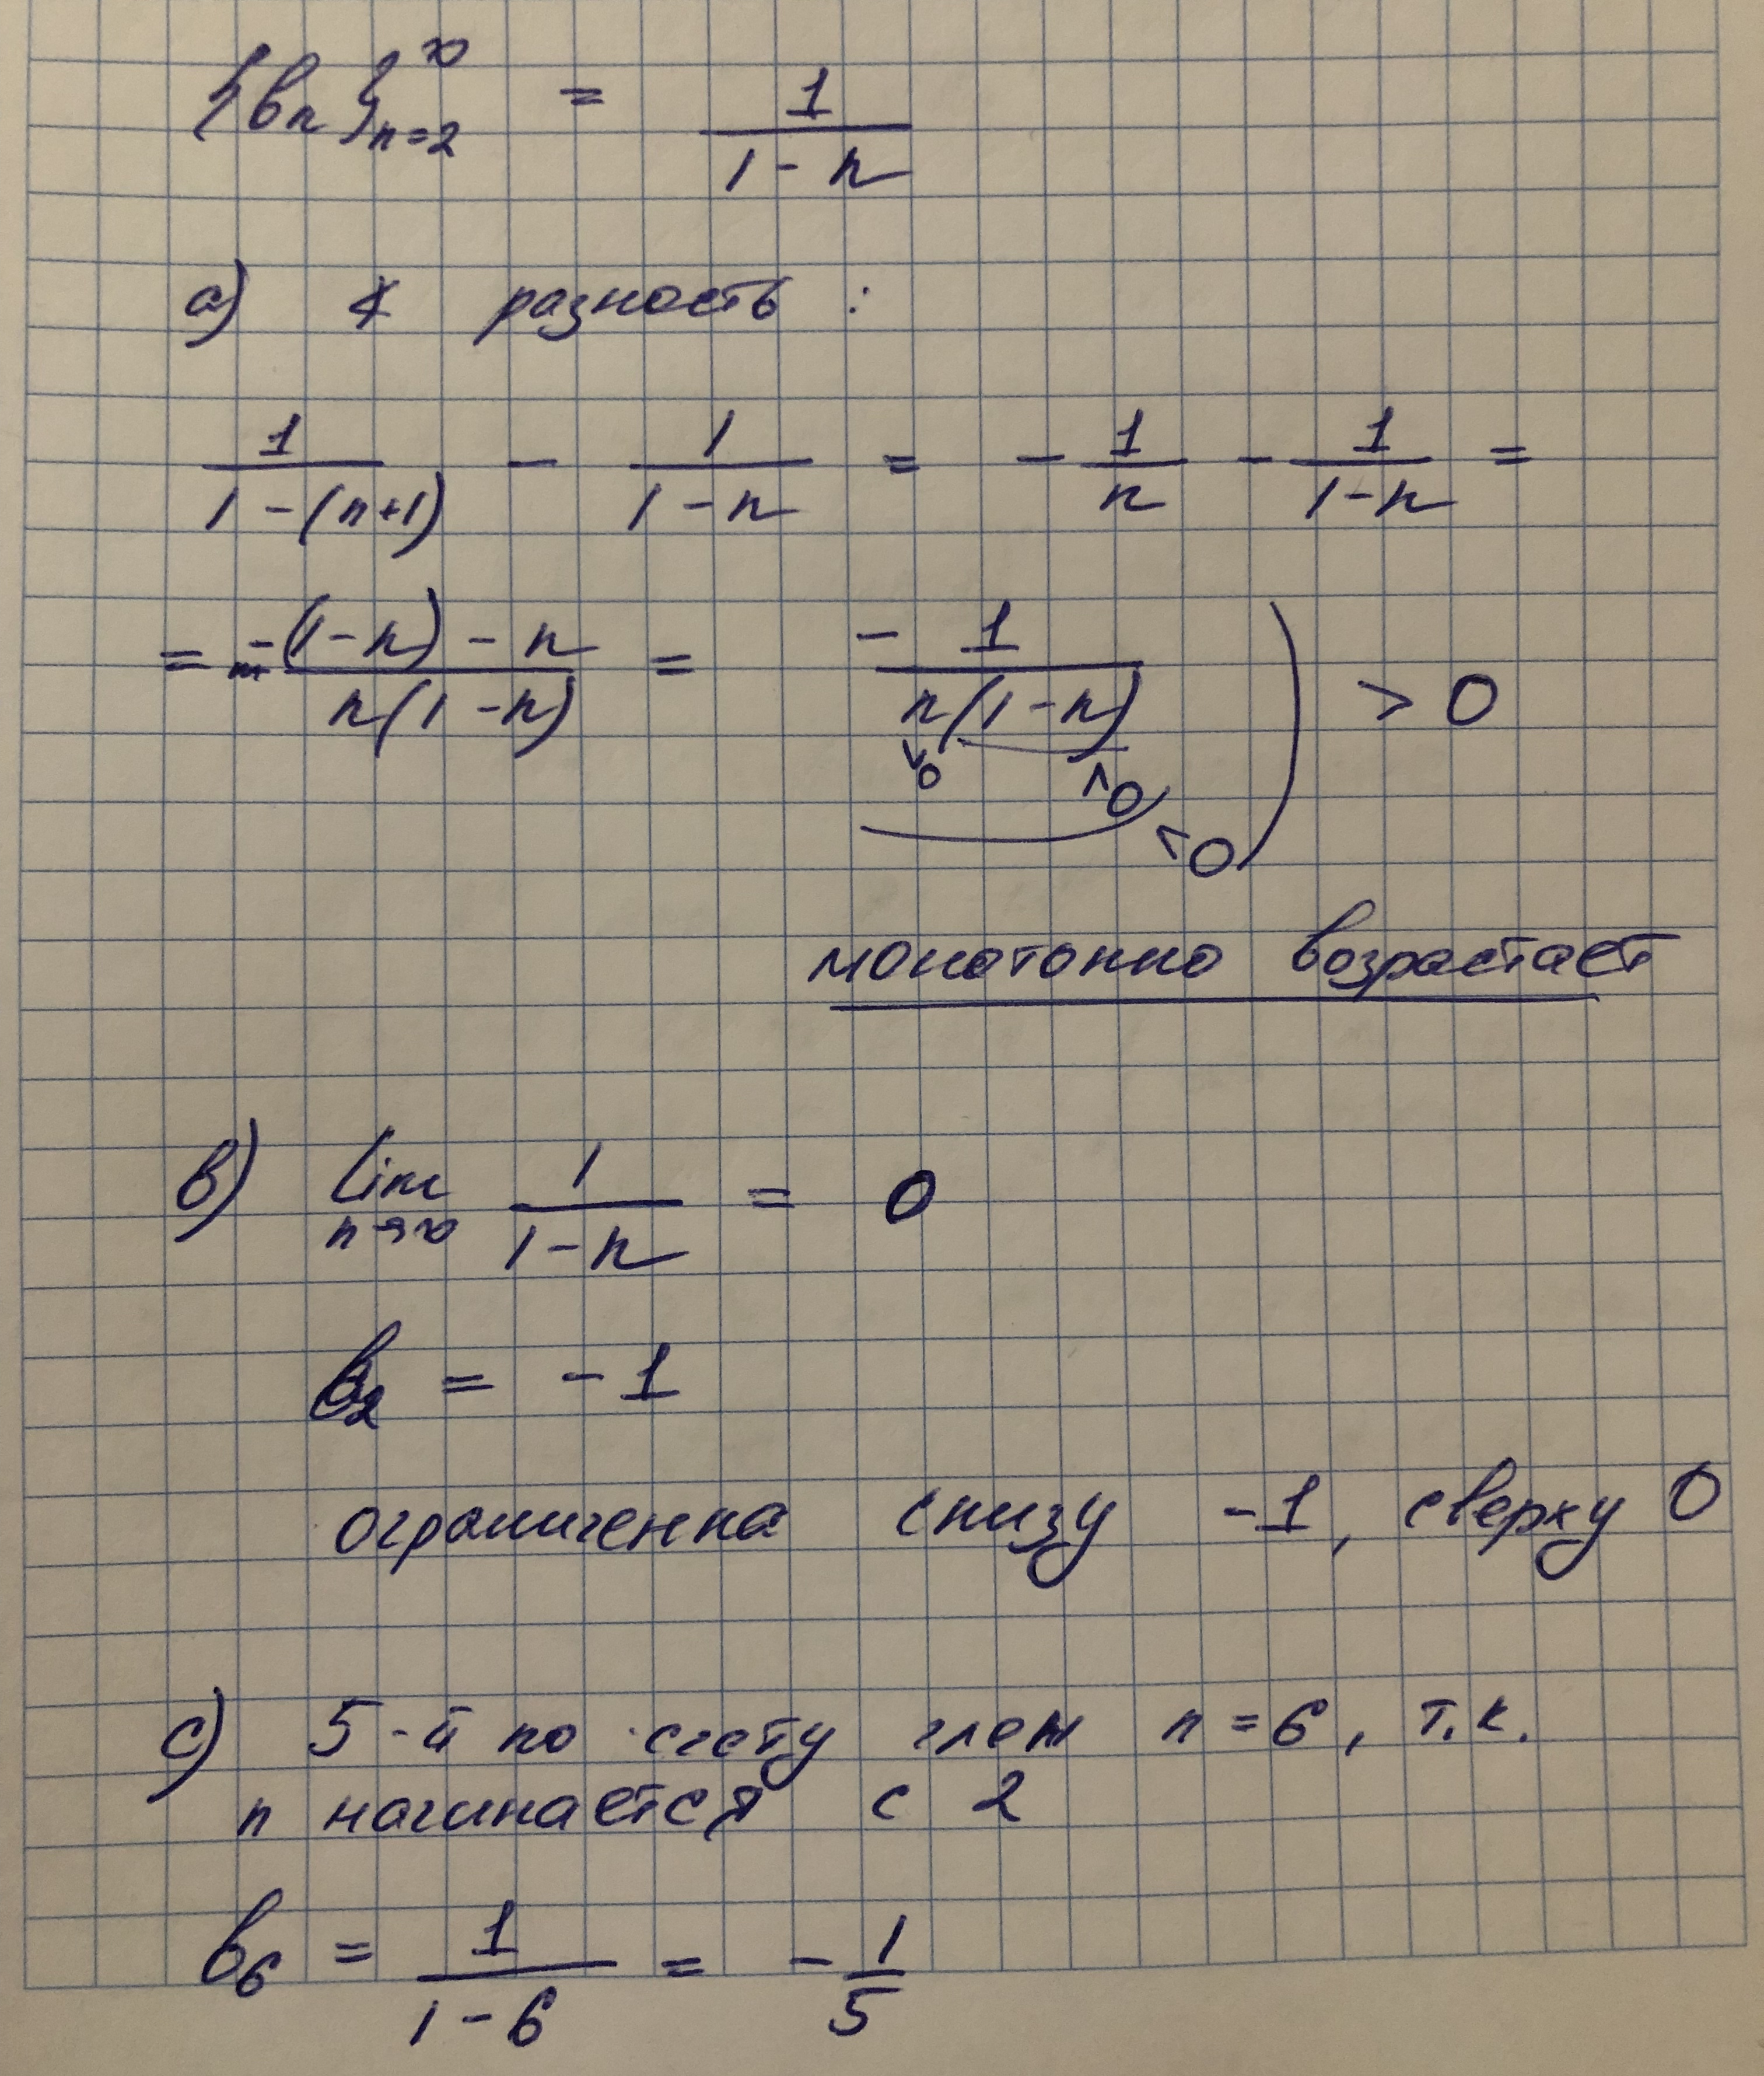 {bₙ}ₙ₌₂^∞ = 1/(1-n)
a) ∢ разность :
1/(1-(n+1)) - 1/(1-n) = - 1/n - 1/(1-n) =
= (-(1-n) - n)/(n(1-n)) = - 1/(n(1-n)) > 0
>0 <0
<0
монотонно возрастает
b) lim n→∞ 1/(1-n) = 0
b₂ = -1
ограниченна снизу -1, сверху 0
c) 5-й по счету член n=6, т.к.
n начинается с 2
b₆ = 1/(1-6) = - 1/5